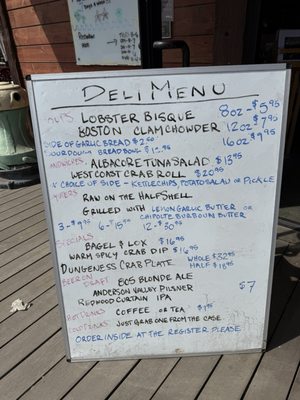 DELI MENU
SOUPS LOBSTER BISQUE 8oz - 5.95
BOSTON CLAMCHOWDER 12oz 7.95
SIDE OF GARLIC BREAD $2.50 16oz 9.95
SOURDOUGH BREAD BOWL $12.95
SANDWICHES ALBACORE TUNA SALAD $13.95
WEST COAST CRAB ROLL $20.95
CHOICE OF SIDE - KETTLE CHIPS, POTATO SALAD OR PICKLE
OYSTERS RAW ON THE HALFSHELL
GRILLED WITH LEMON GARLIC BUTTER OR
CHIPOTLE BOURBON BUTTER
3 - 9.95 6 - 15.95 12 - 30.95
SPECIALS
BAGEL & LOX $16.95
WARM SPICY CRAB DIP $16.95
DUNGENESS CRAB PLATE WHOLE $32.95
HALF $18.95
BEER ON DRAFT 805 BLONDE ALE
ANDERSON VALLEY PILSNER $7
REDWOOD CURTAIN IPA
HOT DRINKS COFFEE OR TEA $1.95
COLD DRINKS JUST GRAB ONE FROM THE CASE
ORDER INSIDE AT THE REGISTER PLEASE
LOBSTER